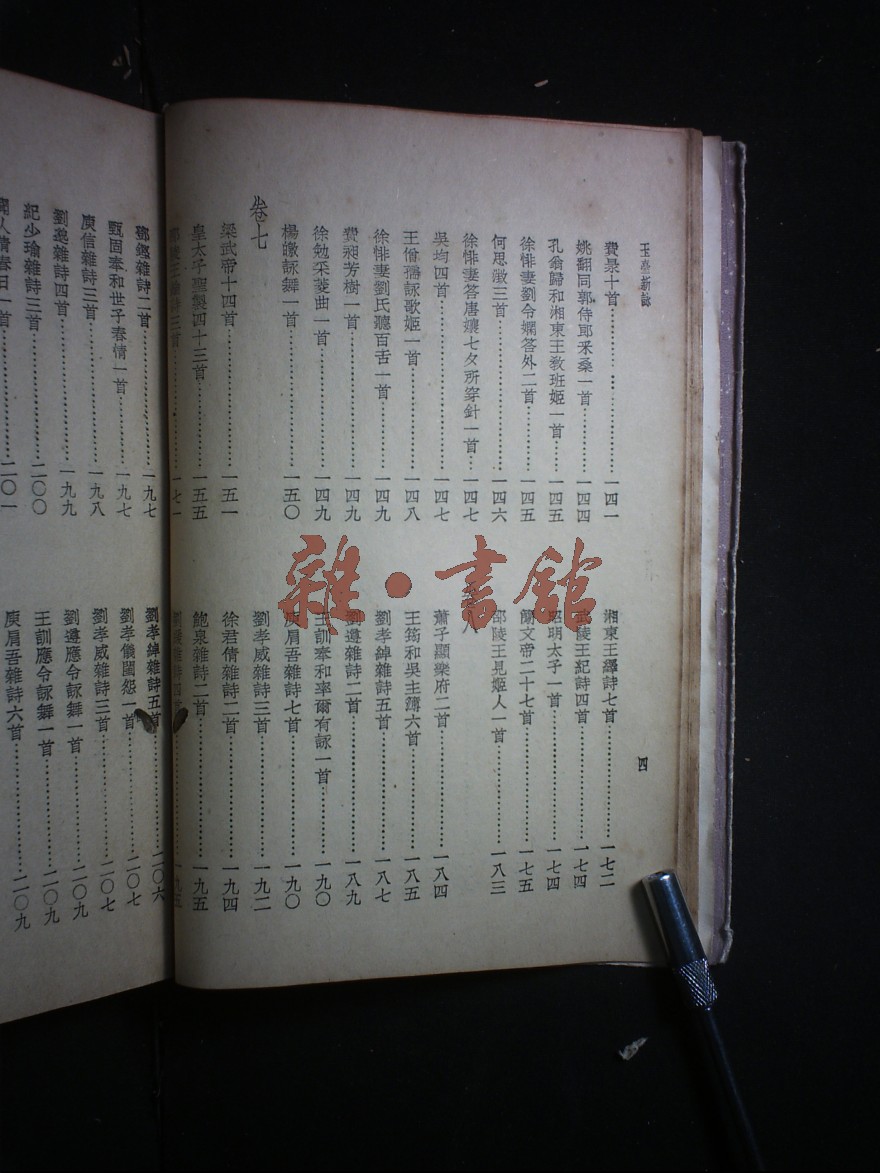 玉臺新詠
費㫤十首……………一四一
姚翻同郭侍郎采桑一首……一四四
孔翁歸和湘東王敎班姬一首……一四五
徐悱妻劉令嫻答外二首……一四五
何思澂三首……………一四六
徐悱妻答唐孃七夕所穿針一首……一四七
吳均四首……………一四七
王僧孺詠歌姬一首……一四八
徐悱妻劉氏聽百舌一首……一四九
費昶芳樹一首……………一四九
徐勉采菱曲一首……………一四九
楊皦詠舞一首……………一五〇
卷七
梁武帝十四首……………一五一
皇太子聖製四十三首……一五五
三首……………一七一
湘東王繹詩七首……………一七二
武陵王紀詩四首……………一七四
昭明太子一首……………一七四
簡文帝二十七首……………一七五
邵陵王見姬人一首……………一八三
八
蕭子顯樂府二首……………一八四
王筠和吳主簿六首……………一八五
劉孝綽雜詩五首……………一八七
劉遵雜詩二首……………一八九
王訓奉和率爾有詠一首……一九〇
庾肩吾雜詩七首……………一九〇
劉孝威雜詩三首……………一九二
徐君倩雜詩二首……………一九四
鮑泉雜詩二首……………一九五
雜詩四首……………一九五
四
鄧鏗雜詩二首……………一九七
甄固奉和世子春情一首……一九七
庾信雜詩三首……………一九八
劉邈雜詩四首……………一九九
紀少瑜雜詩三首……………二〇〇
聞人蒨春日一首……………二〇一
劉孝綽雜詩五首……………二〇六
劉孝儀閨怨一首……………二〇七
劉孝威雜詩三首……………二〇七
劉遵應令詠舞一首……………二〇九
王訓應令詠舞一首……………二〇九
庾肩吾雜詩六首……………二〇九
雜·書館